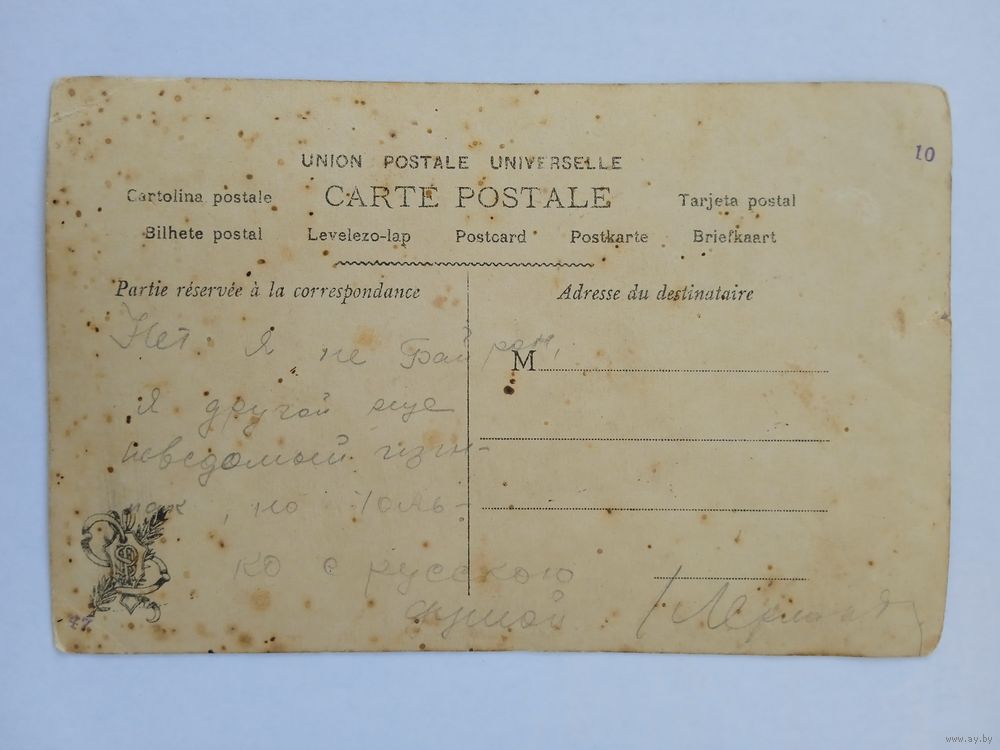 UNION POSTALE UNIVERSELLE
10
Cartolina postale CARTE POSTALE Tarjeta postal
Bilhete postal Levelezo-lap Postcard Postkarte Briefkaart
Partie réservée à la correspondance Adresse du destinataire
Нет Я не Байрон,
M
я другой еще
неведомый изгн-
ник, но толь-
ко с русскою
душой
47
www.ay.by